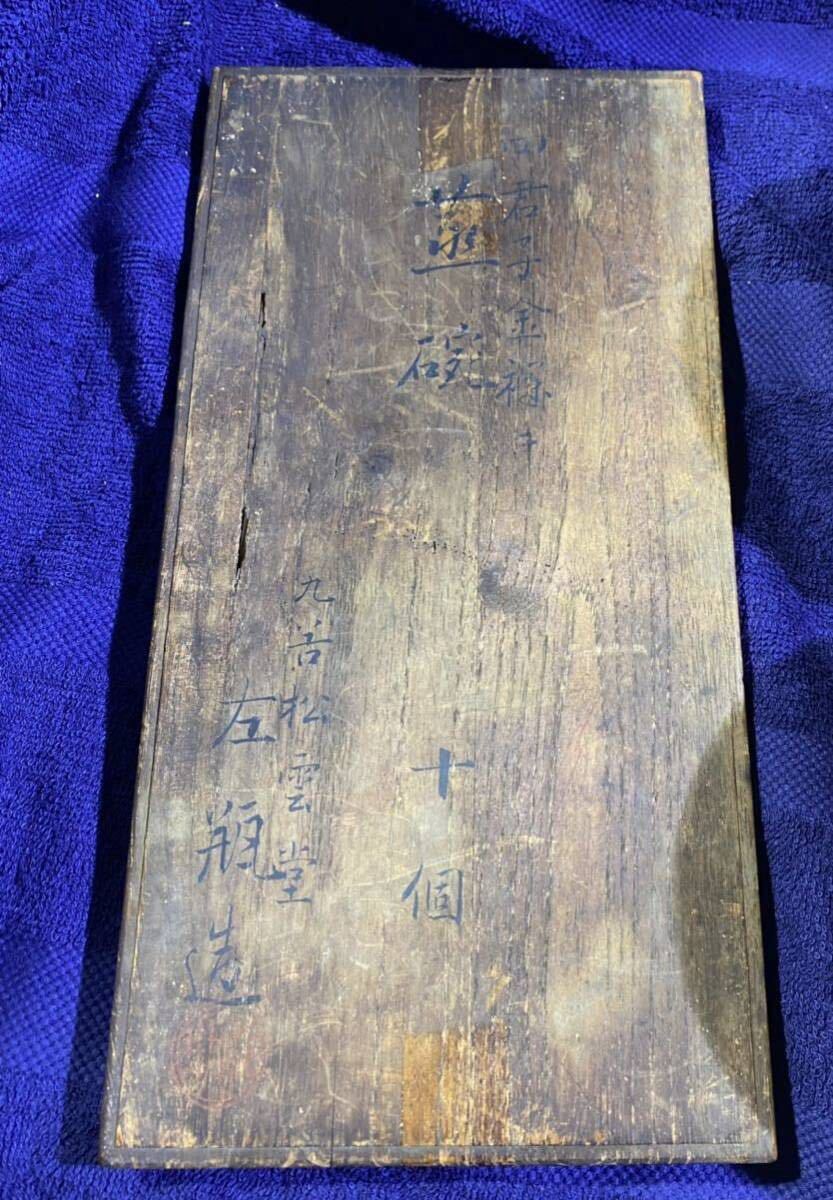 四君子金襴手
蒸碗　十個
九谷松雲堂
左瓶造